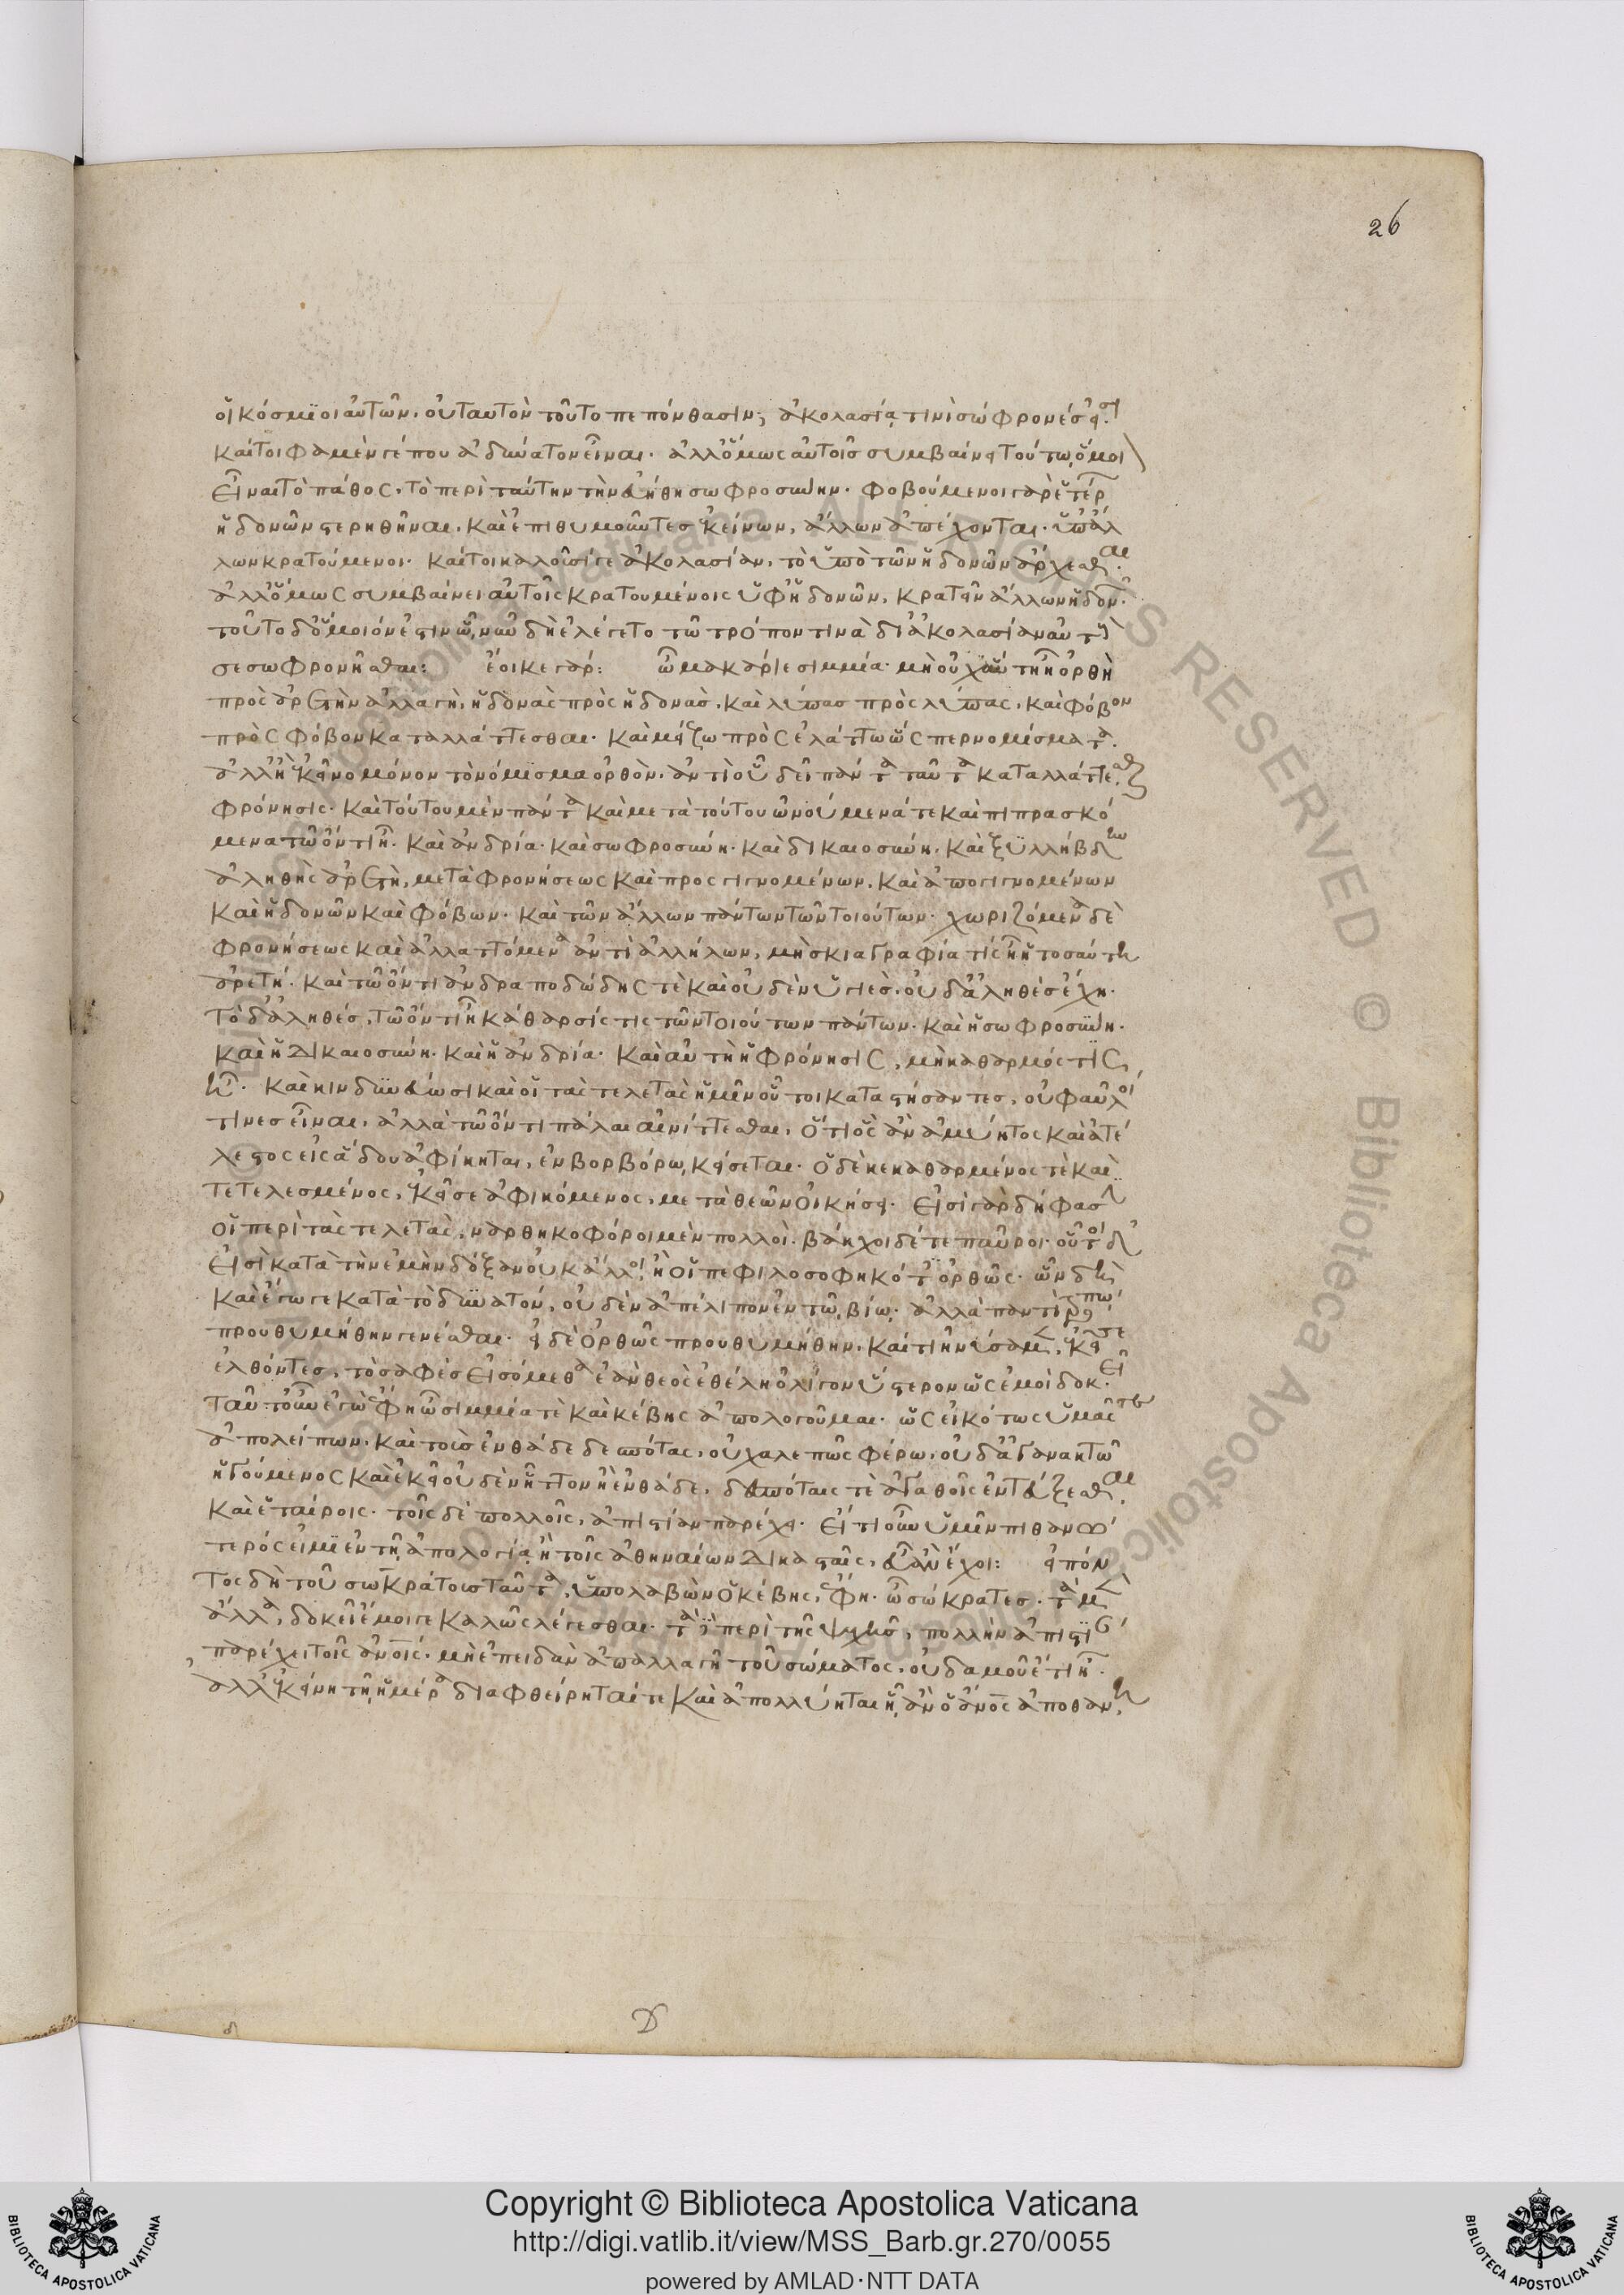 26
οἱ κόσμιοι αὐτῶν. οὐ ταυτὸν τοῦτο πεπόνθασιν; ἀκολασίᾳ τινὶ σώφρονές εἰσι.
καίτοι φαμέν γέ που ἀδύνατον εἶναι. ἀλλ' ὅμως αὐτοῖς συμβαίνει τούτῳ ὅμοι
εἶναι τὸ πάθος, τὸ περὶ ταύτην τὴν εὐήθη σωφροσύνην. φοβούμενοι γὰρ ἑτέρ
ἡδονῶν στερηθῆναι, καὶ ἐπιθυμοῦντες ἐκείνων, ἄλλων ἀπέχονται. ὑπ' ἄλ
λων κρατούμενοι. καίτοι καλοῦσί γε ἀκολασίαν, τὸ ὑπὸ τῶν ἡδονῶν ἄρχεσθαι.
ἀλλ' ὅμως συμβαίνει αὐτοῖς κρατουμένοις ὑφ' ἡδονῶν, κρατεῖν ἄλλων ἡδον.
τοῦτο δ' ὅμοιόν ἐστιν ᾧ νῦν δὴ ἐλέγετο τῷ τρόπον τινὰ δι' ἀκολασίαν αὐτοὺ
σεσωφρονῆσθαι: ἔοικε γάρ: ὦ μακάριε σιμμία. μὴ οὐχ αὕτη ἦ ὀρθὴ
πρὸς ἀρετὴν ἀλλαγὴ, ἡδονὰς πρὸς ἡδονὰς, καὶ λύπας πρὸς λύπας, καὶ φόβον
πρὸς φόβον καταλλάττεσθαι. καὶ μείζω πρὸς ἐλάττω ὥσπερ νομίσματα.
ἀλλ' ἦ ἐκεῖνο μόνον τὸ νόμισμα ὀρθὸν, ἀντὶ οὗ δεῖ πάντα ταῦτα καταλλάττεσθαι
φρόνησις. καὶ τούτου μὲν πάντα καὶ μετὰ τούτου ὠνούμενά τε καὶ πιπρασκό
μενα τῷ ὄντι ἦ. καὶ ἀνδρία. καὶ σωφροσύνη. καὶ δικαιοσύνη. καὶ ξυλλήβδην
ἀληθὴς ἀρετὴ, μετὰ φρονήσεως καὶ προσγιγνομένων. καὶ ἀπογιγνομένων
καὶ ἡδονῶν καὶ φόβων. καὶ τῶν ἄλλων πάντων τῶν τοιούτων. χωριζόμενα δὲ
φρονήσεως καὶ ἀλλαττόμενα ἀντὶ ἀλλήλων, μὴ σκιαγραφία τίς ἦ ἡ τοσαύτη
ἀρετή. καὶ τῷ ὄντι ἀνδραποδώδης τὲ καὶ οὐδὲν ὑγιὲς, οὐδ' ἀληθές ἔχῃ.
τὸ δ' ἀληθές, τῷ ὄντι ἦ κάθαρσίς τις τῶν τοιούτων πάντων. καὶ ἡ σωφροσύνη.
καὶ ἡ δικαιοσύνη. καὶ ἡ ἀνδρία. καὶ αὐτὴ ἡ φρόνησις, μὴ καθαρμός τις
ἦ. καὶ κινδυνεύωσι καὶ οἱ τὰς τελετὰς ἡμῖν οὗτοι καταστήσαντες, οὐ φαῦλοί
τινες εἶναι, ἀλλὰ τῷ ὄντι πάλαι αἰνίττεσθαι, ὅτι ὃς ἂν ἀμύητος καὶ ἀτέ
λεστος εἰς ἅδου ἀφίκηται, ἐν βορβόρῳ κείσεται. ὁ δὲ κεκαθαρμένος τὲ καὶ
τετελεσμένος, ἐκεῖσε ἀφικόμενος, μετὰ θεῶν οἰκήσει. εἰσὶ γὰρ δή φασιν
οἱ περὶ τὰς τελετὰς, ναρθηκοφόροι μὲν πολλοὶ. βάκχοι δέ τε παῦροι. οὗτοι δ'
εἰσὶ κατὰ τὴν ἐμὴν δόξαν οὐκ ἄλλοι ἢ οἱ πεφιλοσοφηκότες ὀρθῶς. ὧν δὴ
καὶ ἔγωγε κατὰ τὸ δυνατόν, οὐδὲν ἀπέλιπον ἐν τῷ βίῳ. ἀλλὰ παντὶ τρόπῳ
προυθυμήθην γενέσθαι. εἰ δὲ ὀρθῶς προυθυμήθην, καί τι ἠνύσαμεν, ἐκεῖσε
ἐλθόντες, τὸ σαφές εἰσόμεθα ἐὰν θεὸς ἐθέλῃ ὀλίγον ὕστερον ὡς ἐμοὶ δοκεῖ.
ταῦτ' οὖν ἐγὼ ἔφη ὦ σιμμία τὲ καὶ κέβης ἀπολογοῦμαι. ὡς εἰκότως ὑμᾶς τε
ἀπολείπων. καὶ τοὺς ἐνθάδε δεσπότας, οὐ χαλεπῶς φέρω, οὐδ' ἀγανακτῶ
ἡγούμενος κἀκεῖ οὐδὲν ἧττον ἢ ἐνθάδε, δεσπόταις τὲ ἀγαθοῖς ἐντεύξεσθαι
καὶ ἑταίροις. τοῖς δὲ πολλοῖς, ἀπιστίαν παρέχει. εἴ τι οὖν ὑμῖν πιθανώ
τερός εἰμι ἐν τῇ ἀπολογίᾳ ἢ τοῖς ἀθηναίων δικασταῖς, εὖ ἂν ἔχοι: εἰπόν
τος δὴ τοῦ σωκράτους ταῦτα, ὑπολαβὼν ὁ κέβης, ἔφη. ὦ σώκρατες. τὰ μὲν
ἄλλα, δοκεῖ ἔμοιγε καλῶς λέγεσθαι. τὰ δὲ περὶ τῆς ψυχῆς, πολλὴν ἀπιστί
παρέχει τοῖς ἀνοις. μὴ ἐπειδὰν ἀπαλλαγῇ τοῦ σώματος, οὐδαμοῦ ἔτι ἦ.
ἀλλ' ἐκείνῃ τῇ ἡμέρᾳ διαφθείρηταί τε καὶ ἀπολλύηται ᾗ ἂν ὁ ἀνος ἀποθάνῃ
Copyright © Biblioteca Apostolica Vaticana
http://digi.vatlib.it/view/MSS_Barb.gr.270/0055
powered by AMLAD·NTT DATA
BIBLIOTECA APOSTOLICA VATICANA
BIBLIOTECA APOSTOLICA VATICANA